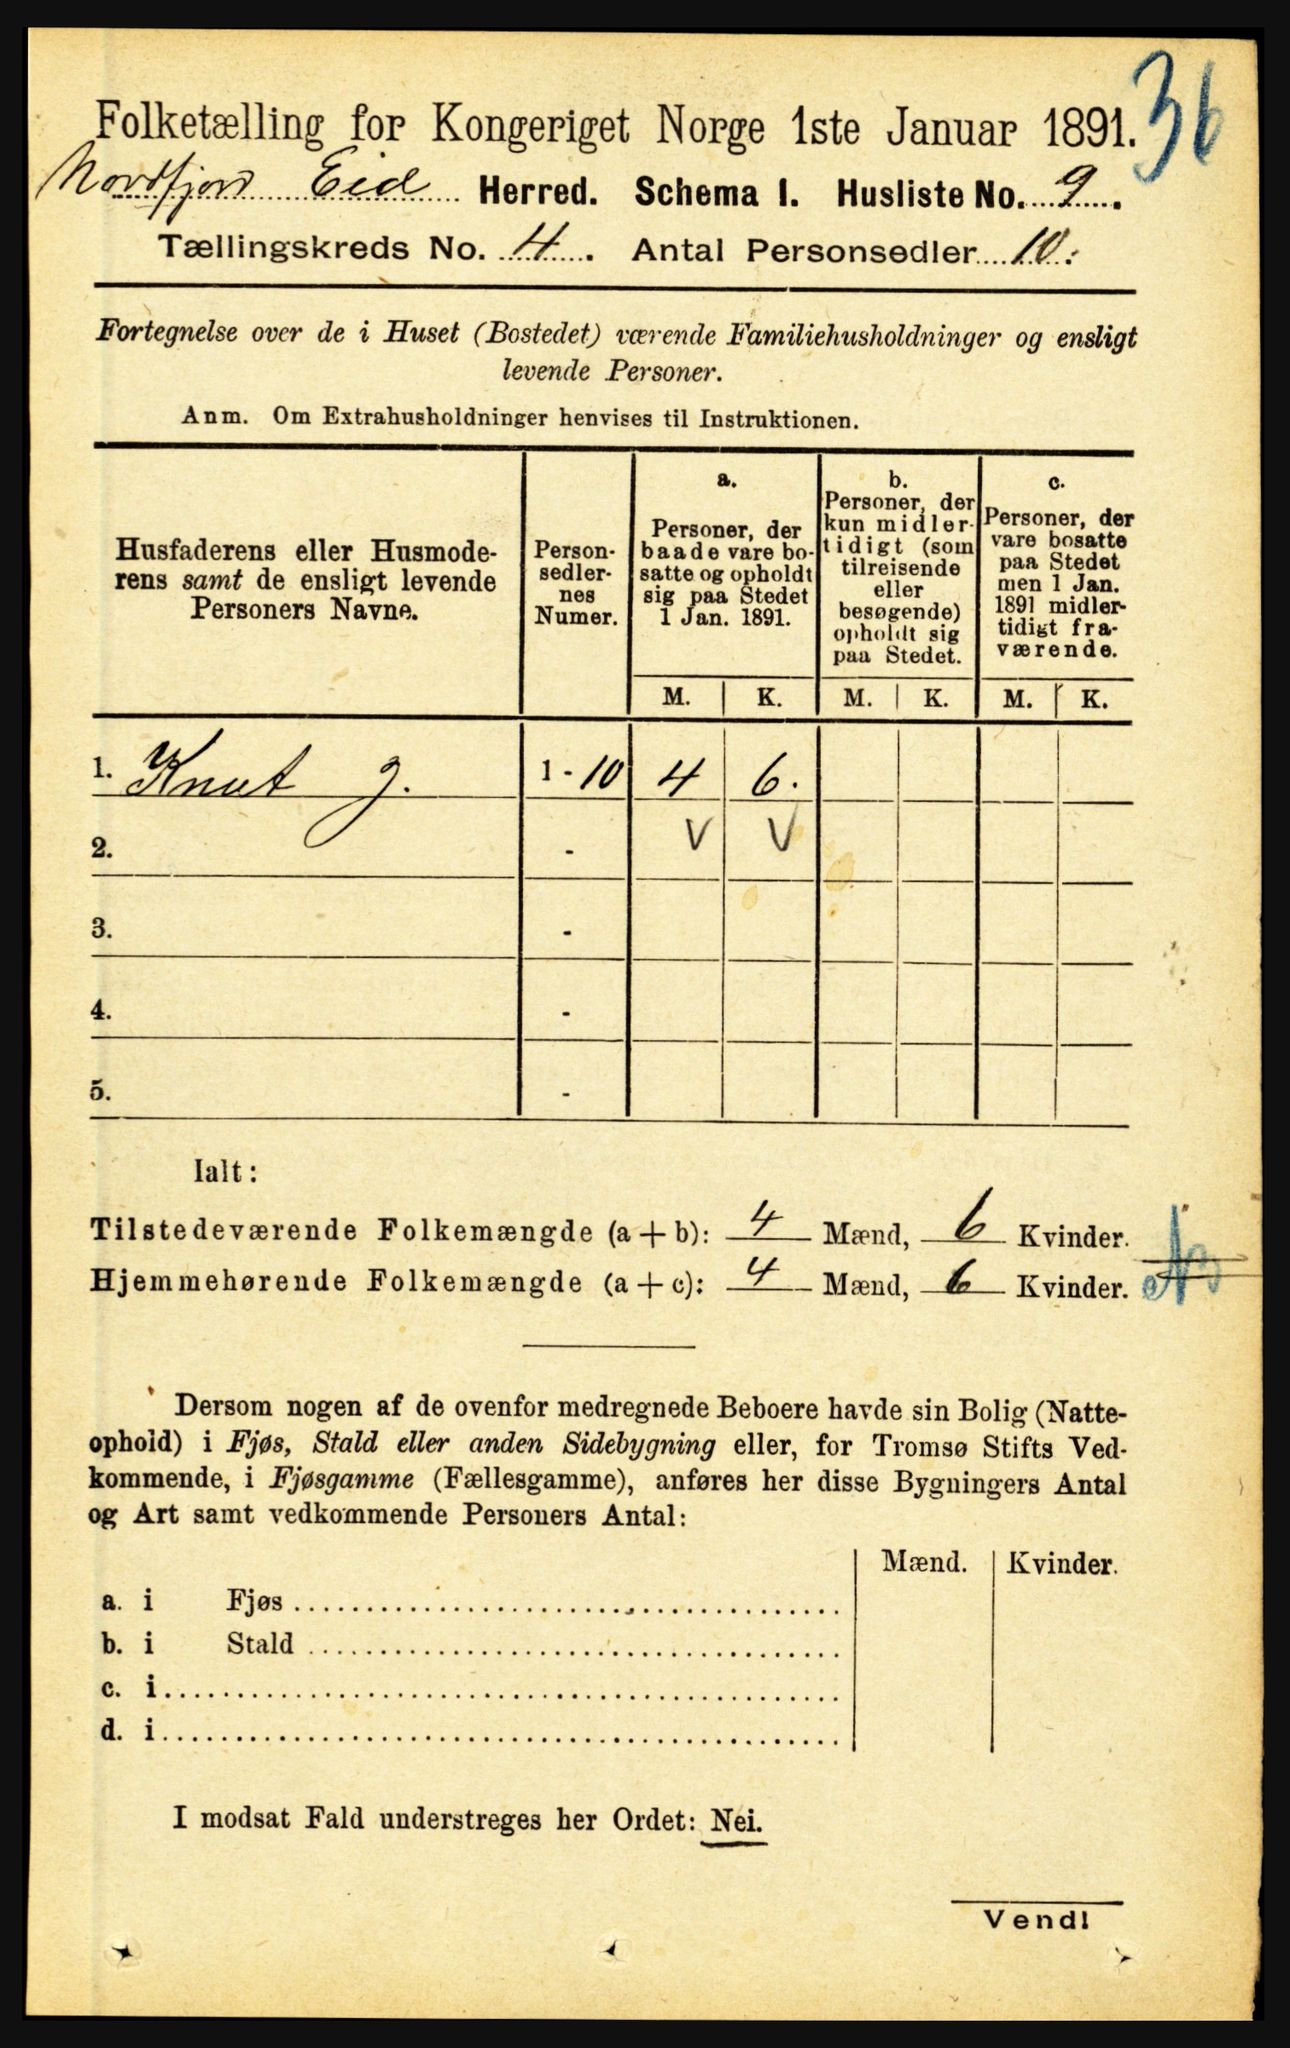 36
Folketælling for Kongeriget Norge 1ste Januar 1891.
Nordfjord Eid Herred. Schema I. Husliste No. 9.
Tællingskreds No. 4. Antal Personsedler 10.
Fortegnelse over de i Huset (Bostedet) værende Familiehusholdninger og ensligt
levende Personer.
Anm. Om Extrahusholdninger henvises til Instruktionen.
Husfaderens eller Husmode-
rens samt de ensligt levende
Personers Navne.
Person-
sedler-
nes
Numer.
a.
Personer, der
baade vare bo-
satte og opholdt
sig paa Stedet
1 Jan. 1891.
b.
Personer, der
kun midler-
tidigt (som
tilreisende
eller
besøgende)
opholdt sig
paa Stedet.
c.
Personer, der
vare bosatte
paa Stedet
men 1 Jan.
1891 midler-
tidigt fra-
værende.
M. K. M. K. M. K.
1. Knut J. 1 - 10 4 6.
2. - V V
3. -
4. -
5. -
Ialt:
Tilstedeværende Folkemængde (a + b): 4 Mænd, 6 Kvinder.
Hjemmehørende Folkemængde (a + c): 4 Mænd, 6 Kvinder.
Dersom nogen af de ovenfor medregnede Beboere havde sin Bolig (Natte-
ophold) i Fjøs, Stald eller anden Sidebygning eller, for Tromsø Stifts Ved-
kommende, i Fjøsgamme (Fællesgamme), anføres her disse Bygningers Antal
og Art samt vedkommende Personers Antal:
Mænd. Kvinder.
a. i Fjøs
b. i Stald
c. i
d. i
I modsat Fald understreges her Ordet: Nei.
Vend!